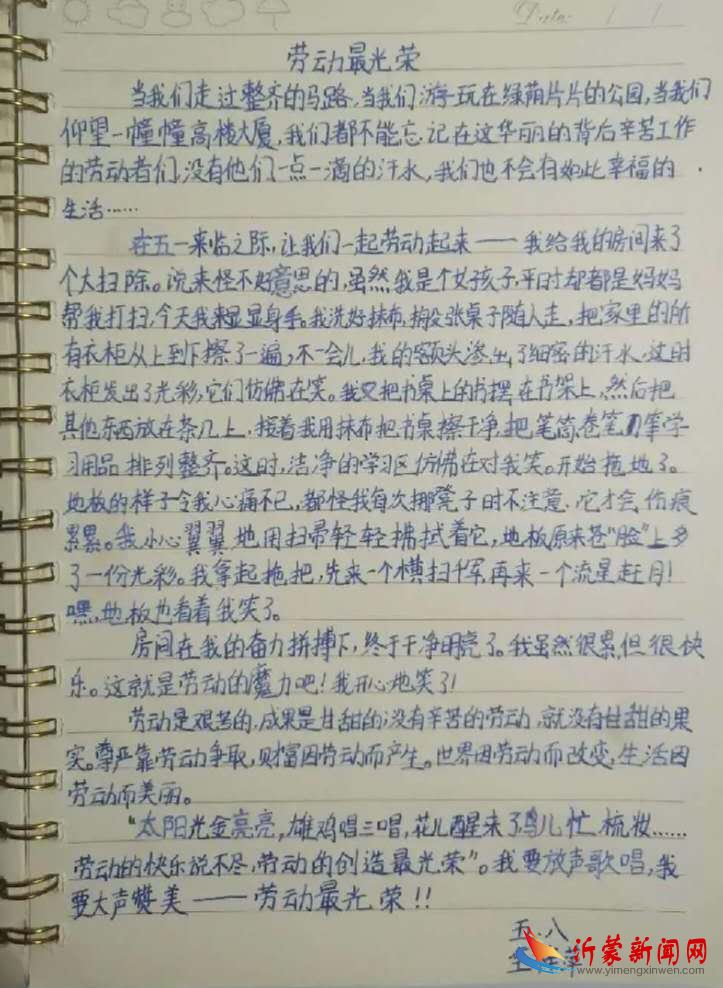 Date: / /
劳动最光荣
当我们走过整齐的马路,当我们游玩在绿荫片片的公园,当我们
仰望一幢幢高楼大厦,我们都不能忘记在这华丽的背后辛苦工作
的劳动者们,没有他们一点一滴的汗水,我们也不会有如此幸福的
生活……
在五一来临之际,让我们一起劳动起来——我给我的房间来了
个大扫除。说来怪不好意思的,虽然我是个女孩子,平时却都是妈妈
帮我打扫,今天我来显显身手。我洗好抹布,搬张桌子随人走,把家里的所
有衣柜从上到下擦了一遍,不一会儿,我的额头渗出了细密的汗水,这时
衣柜发出了光彩,它们仿佛在笑。我又把书桌上的书摆在书架上,然后把
其他东西放在茶几上,接着我用抹布把书桌擦干净,把笔筒卷笔刀等学
习用品排列整齐。这时,洁净的学习区仿佛在对我笑。开始拖地了。
地板的样子令我心痛不已,都怪我每次挪凳子时不注意,它才会伤痕
累累。我小心翼翼地用扫帚轻轻拂拭着它,地板原来苍"脸"上多
了一份光彩。我拿起拖把,先来一个横扫千军,再来一个流星赶月!
嘿,地板也看着我笑了。
房间在我的奋力拼搏下,终于干净明亮了。我虽然很累,但很快
乐。这就是劳动的魔力吧!我开心地笑了!
劳动是艰苦的,成果是甘甜的,没有辛苦的劳动,就没有甘甜的果
实。尊严靠劳动争取,财富因劳动而产生。世界因劳动而改变,生活因
劳动而美丽。
"太阳光金亮亮,雄鸡唱三唱,花儿醒来了,鸟儿忙梳妆……
劳动的快乐说不尽,劳动的创造最光荣"。我要放声歌唱,我
要大声赞美——劳动最光荣!!
五.八
沂蒙新闻网
www.yimengxinwen.com